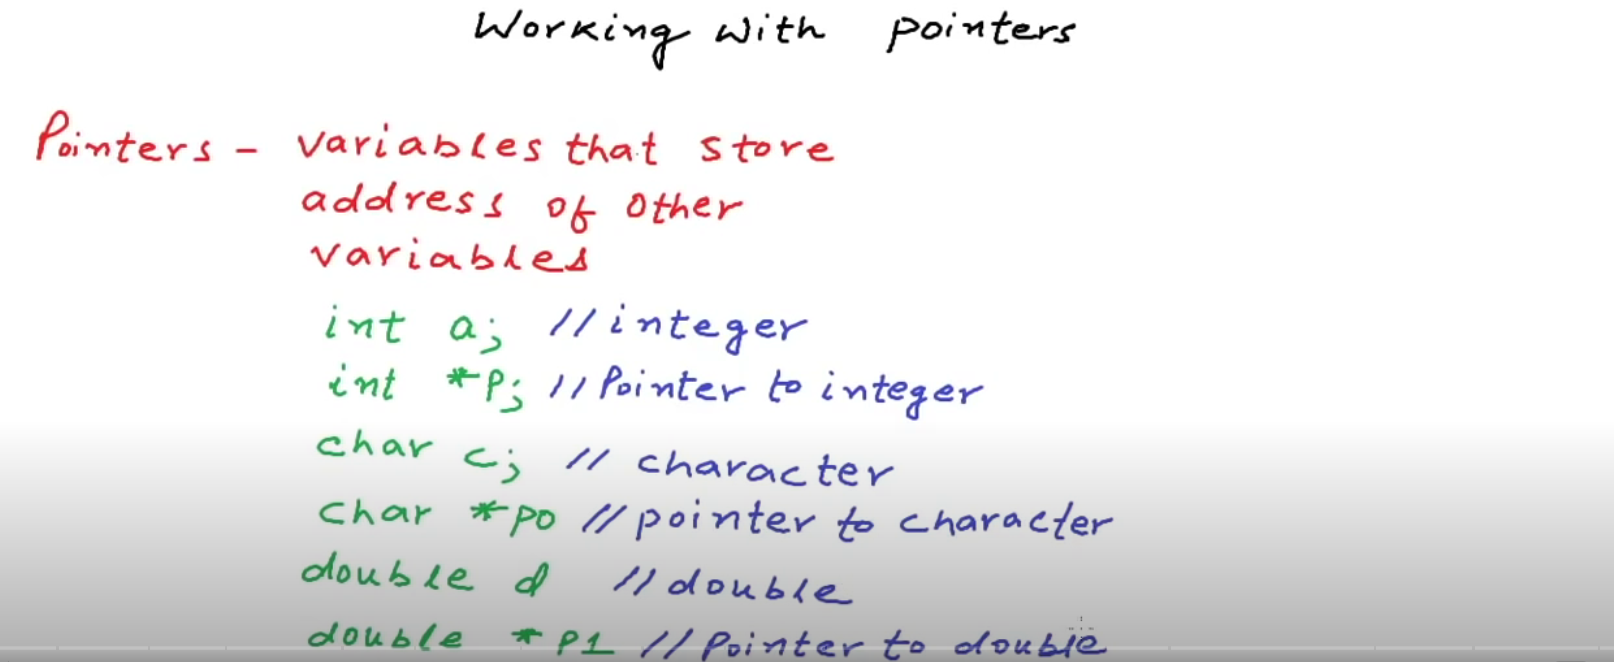 Working with pointers
Pointers - variables that store
address of other
variables
int a; //integer
int *p; //Pointer to integer
char c; // character
char *po //pointer to character
double d //double
double *P1 //Pointer to double